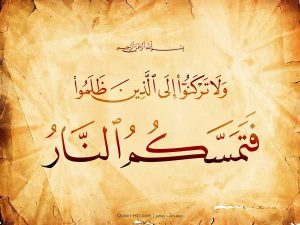 بسم الله الرحمن الرحيم
وَلَا تَرْكَنُوٓا۟ إِلَى ٱلَّذِينَ ظَلَمُوا۟
فَتَمَسَّكُمُ ٱلنَّارُ